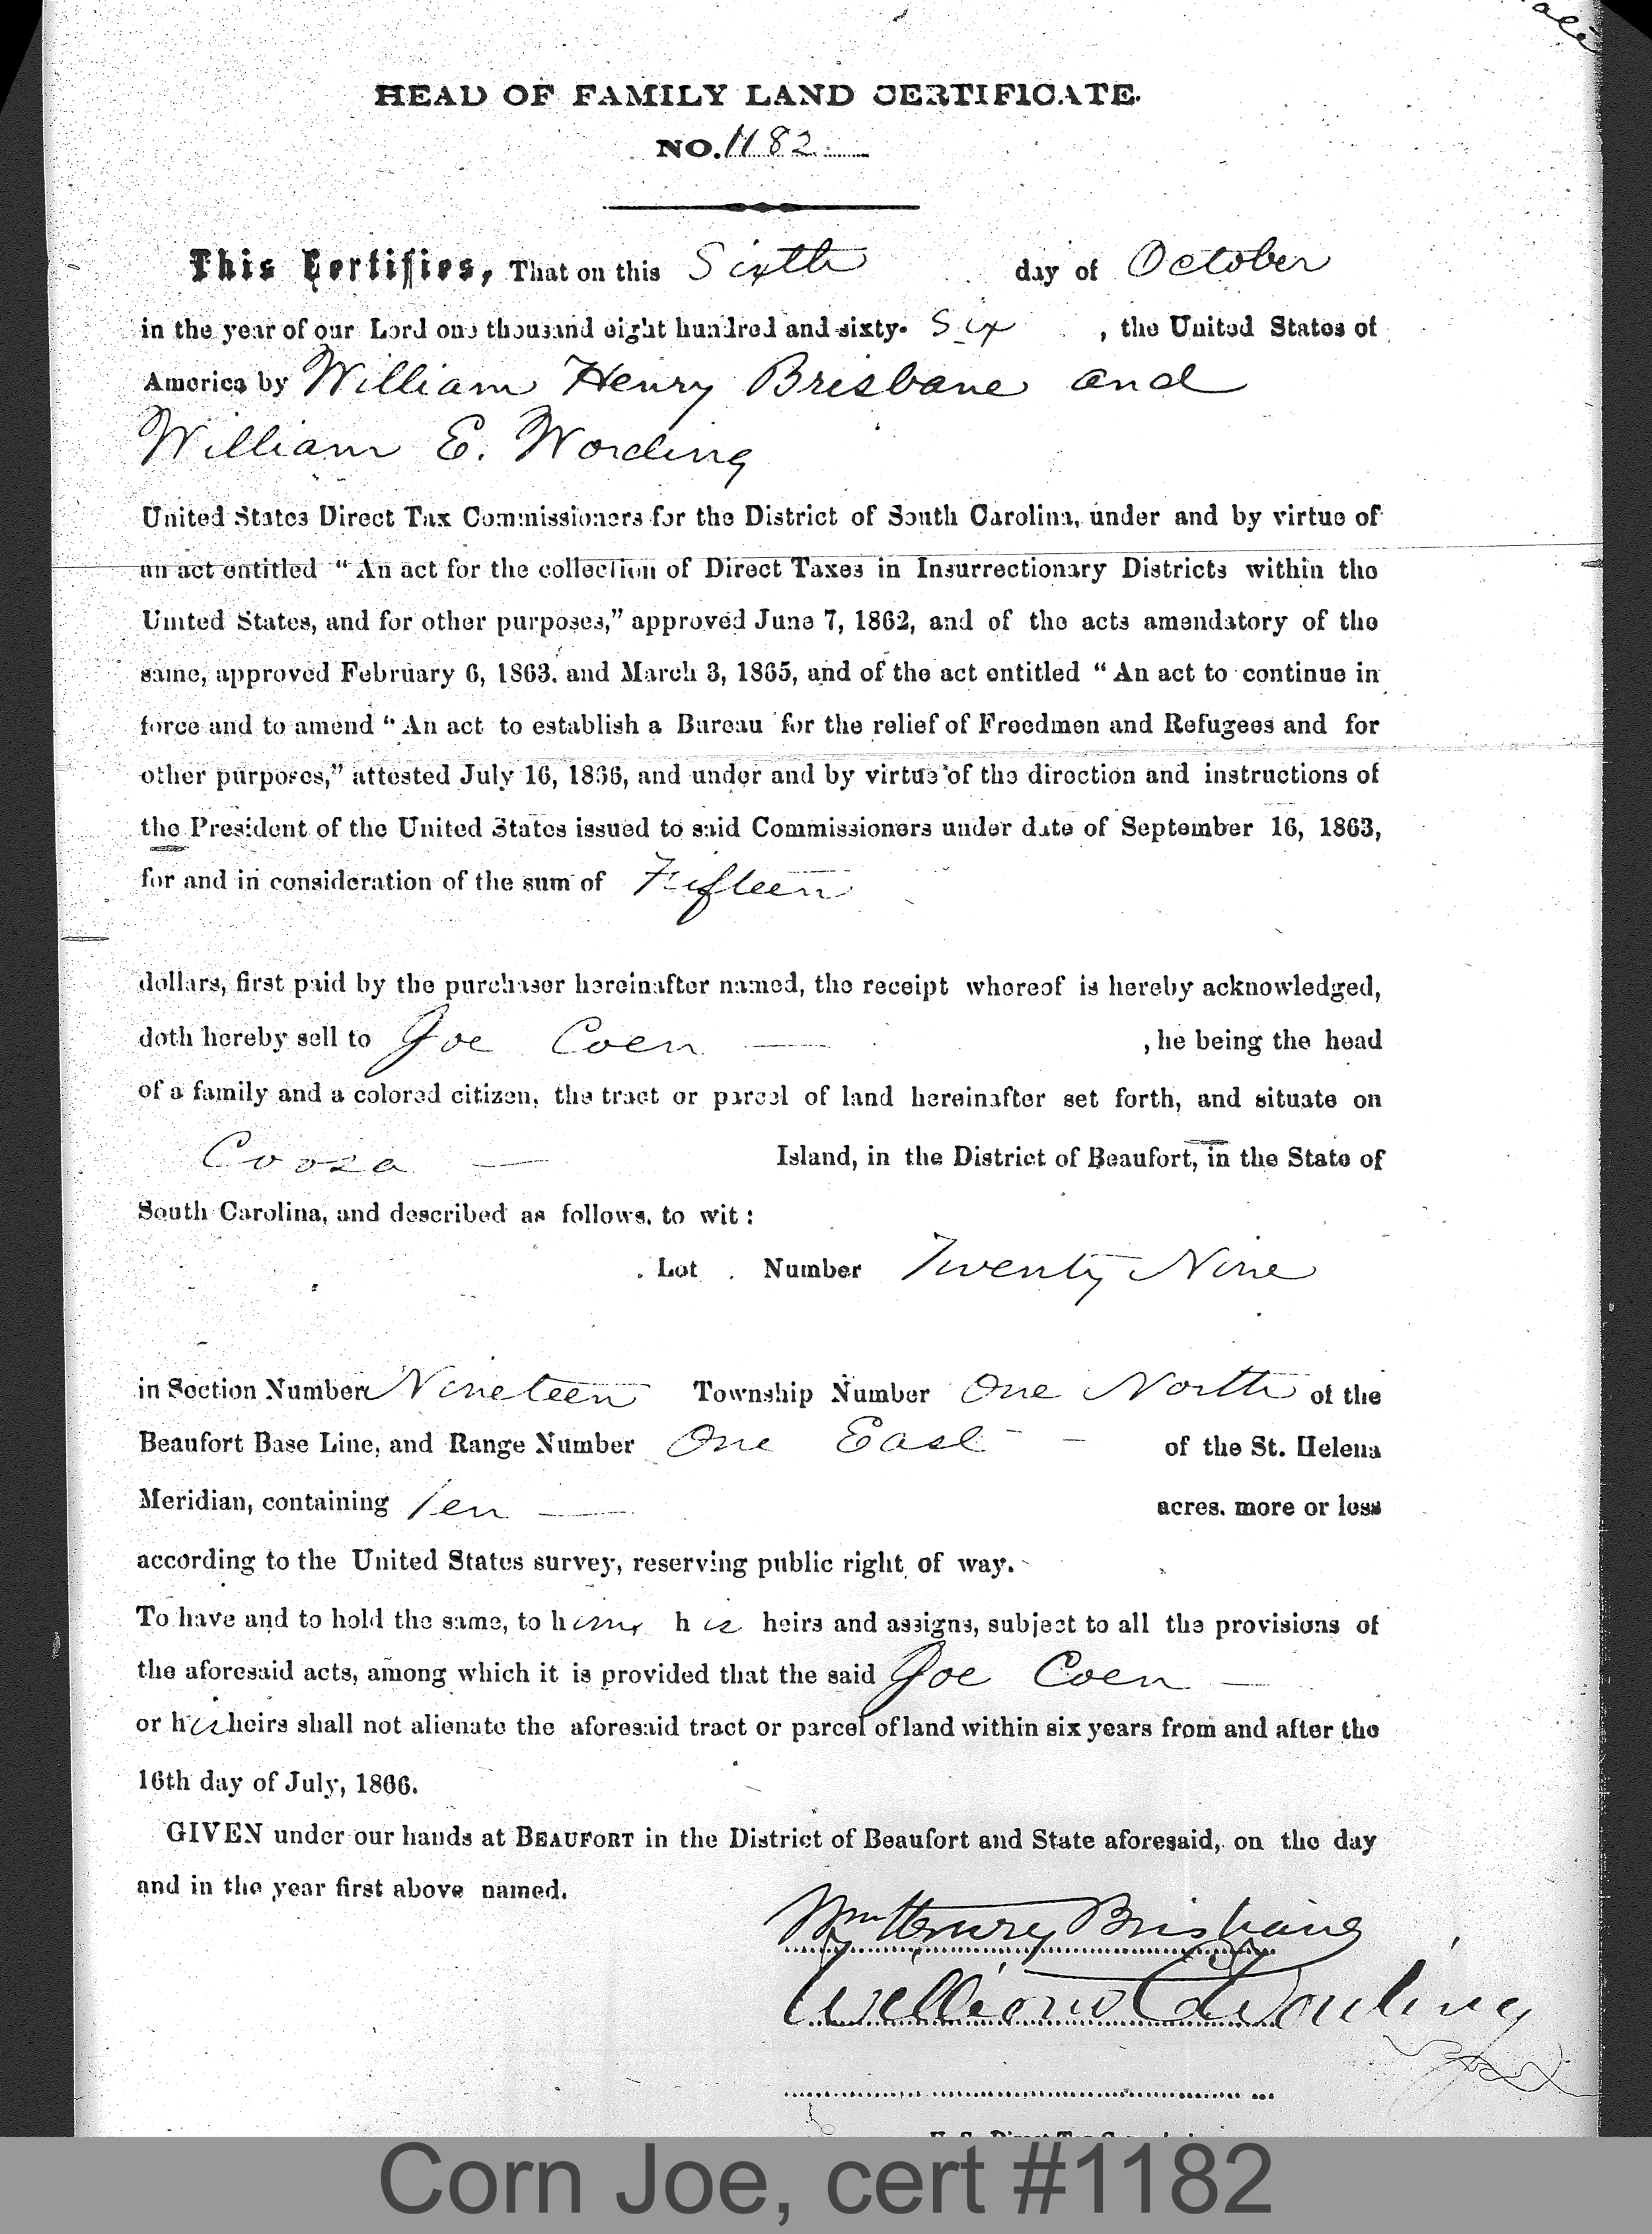 HEAD OF FAMILY LAND CERTIFICATE.
NO. 1182
This Certifies, That on this Sixth day of October
in the year of our Lord one thousand eight hundred and sixty- Six , the United States of
America by William Henry Brisbane and
William E. Wording
United States Direct Tax Commissioners for the District of South Carolina, under and by virtue of
an act entitled “ An act for the collection of Direct Taxes in Insurrectionary Districts within the
United States, and for other purposes,” approved June 7, 1862, and of the acts amendatory of the
same, approved February 6, 1863. and March 3, 1865, and of the act entitled “ An act to continue in
force and to amend “ An act to establish a Bureau for the relief of Freedmen and Refugees and for
other purposes,” attested July 16, 1866, and under and by virtue of the direction and instructions of
the President of the United States issued to said Commissioners under date of September 16, 1863,
for and in consideration of the sum of Fifteen
dollars, first paid by the purchaser hereinafter named, the receipt whereof is hereby acknowledged,
doth hereby sell to Joe Coen — , he being the head
of a family and a colored citizen, the tract or parcel of land hereinafter set forth, and situate on
Coosa — Island, in the District of Beaufort, in the State of
South Carolina, and described as follows. to wit :
Lot Number Twenty Nine
in Section Number Nineteen Township Number One North of the
Beaufort Base Line, and Range Number One East - - of the St. Helena
Meridian, containing Ten — acres. more or less
according to the United States survey, reserving public right of way.
To have and to hold the same, to him his heirs and assigns, subject to all the provisions of
the aforesaid acts, among which it is provided that the said Joe Coen —
or his heirs shall not alienate the aforesaid tract or parcel of land within six years from and after the
16th day of July, 1866.
GIVEN under our hands at BEAUFORT in the District of Beaufort and State aforesaid, on the day
and in the year first above named.
Wm Henry Brisbane
William E. Wording
Corn Joe, cert #1182